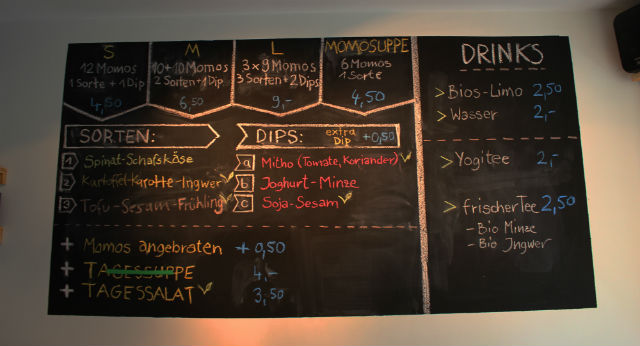 S
12 Momos
1 Sorte + 1 Dip
4,50
M
10+10 Momos
2 Sorten + 1 Dip
6,50
L
3 x 9 Momos
3 Sorten + 2 Dips
9,-
MOMOSUPPE
6 Momos
1 Sorte
4,50
SORTEN:
1 Spinat-Schafskäse
2 Kartoffel-Karotte-Ingwer
3 Tofu-Sesam-Frühling
DIPS: extra Dip +0,50
a Mitho (Tomate, Koriander)
b Joghurt-Minze
c Soja-Sesam
+ Momos angebraten + 0,50
+ TAGESSUPPE 4,-
+ TAGESSALAT 3,50
DRINKS
> Bios-Limo 2,50
> Wasser 2,-
> Yogitee 2,-
> frischer Tee 2,50
- Bio Minze
- Bio Ingwer